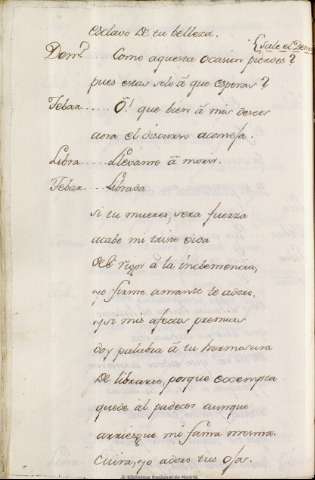 esclavo de tu belleza.
(sale el Dem.
Dem.º Como aquesta ocasion pierdes?
pues estas solo â que esperas?
Tobar..... Ô! que bien â mis deseos
aora el discurso aconseja.
Libra..... Llevame â morir.
Tobar..... Librada
si tu mueres, sera fuerza
acabe mi triste vida
del rigor â la inclemencia,
yo firme amante te adoro,
y si mis afectos premias
doy palabra â tu hermosura
de librarte, porque exempta
quede al padecer aunque
arriesgue mi fama mesma.
Cuira, yo adoro tus ojos.
Biblioteca Nacional de España